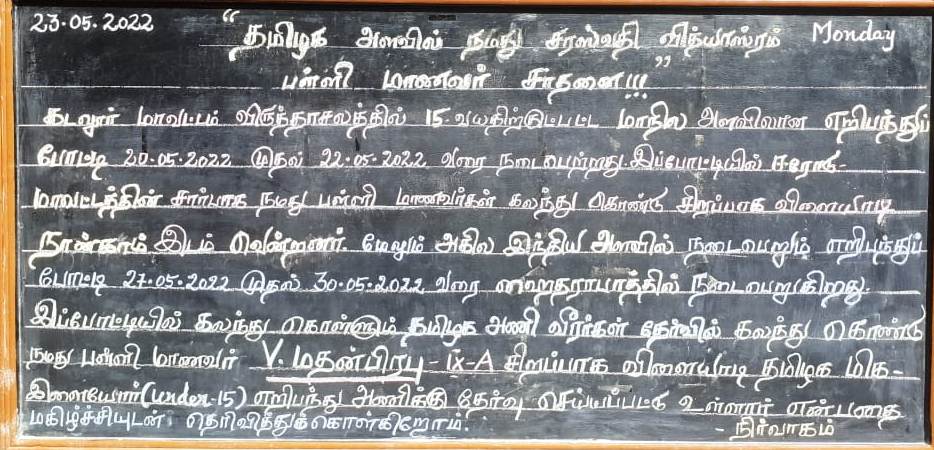 23.05.2022 "தமிழக அளவில் நமது சரஸ்வதி வித்யாஸ்ரம் Monday
பள்ளி மாணவர் சாதனை!!!"
கடலூர் மாவட்டம் விருத்தாசலத்தில் 15-வயதிற்குட்பட்ட மாநில அளவிலான எறிபந்துப்
போட்டி 20.05.2022 முதல் 22.05.2022 வரை நடைபெற்றது. இப்போட்டியில் ஈரோடு-
மாவட்டத்தின் சார்பாக நமது பள்ளி மாணவர்கள் கலந்து கொண்டு சிறப்பாக விளையாடி
நான்காம் இடம் வென்றனர். மேலும் அகில இந்திய அளவில் நடைபெறும் எறிபந்துப்
போட்டி 27.05.2022 முதல் 30.05.2022 வரை ஹைதராபாத்தில் நடைபெறுகிறது.
இப்போட்டியில் கலந்து கொள்ளும் தமிழக அணி வீரர்கள் தேர்வில் கலந்து கொண்டு
நமது பள்ளி மாணவர் V. மதன்பிரபு - IX-A சிறப்பாக விளையாடி தமிழக மிக-
இளையோர் (under-15) எறிபந்து அணிக்கு தேர்வு செய்யப்பட்டு உள்ளார் என்பதை
மகிழ்ச்சியுடன் தெரிவித்துக்கொள்கிறோம். - நிர்வாகம்